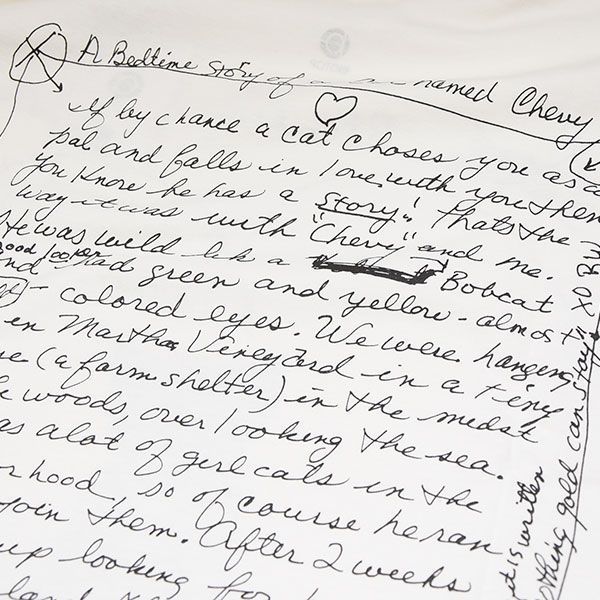 A Bedtime story of a named Chevy
If by chance a cat choses you as a
pal and falls in love with you then
you know he has a story! Thats the
way it was with "Chevy" and me.
He was wild lik a Bobcat
good looker
and had green and yellow - almost
colored eyes. We were hanging
in Marthas Vineyard in a tiny
(a farm shelter) in the midst
woods, over looking the sea.
as alot of girl cats in the
hood, so of course he ran
join them. After 2 weeks
up looking for
it is written
nothing gold can stay" XO